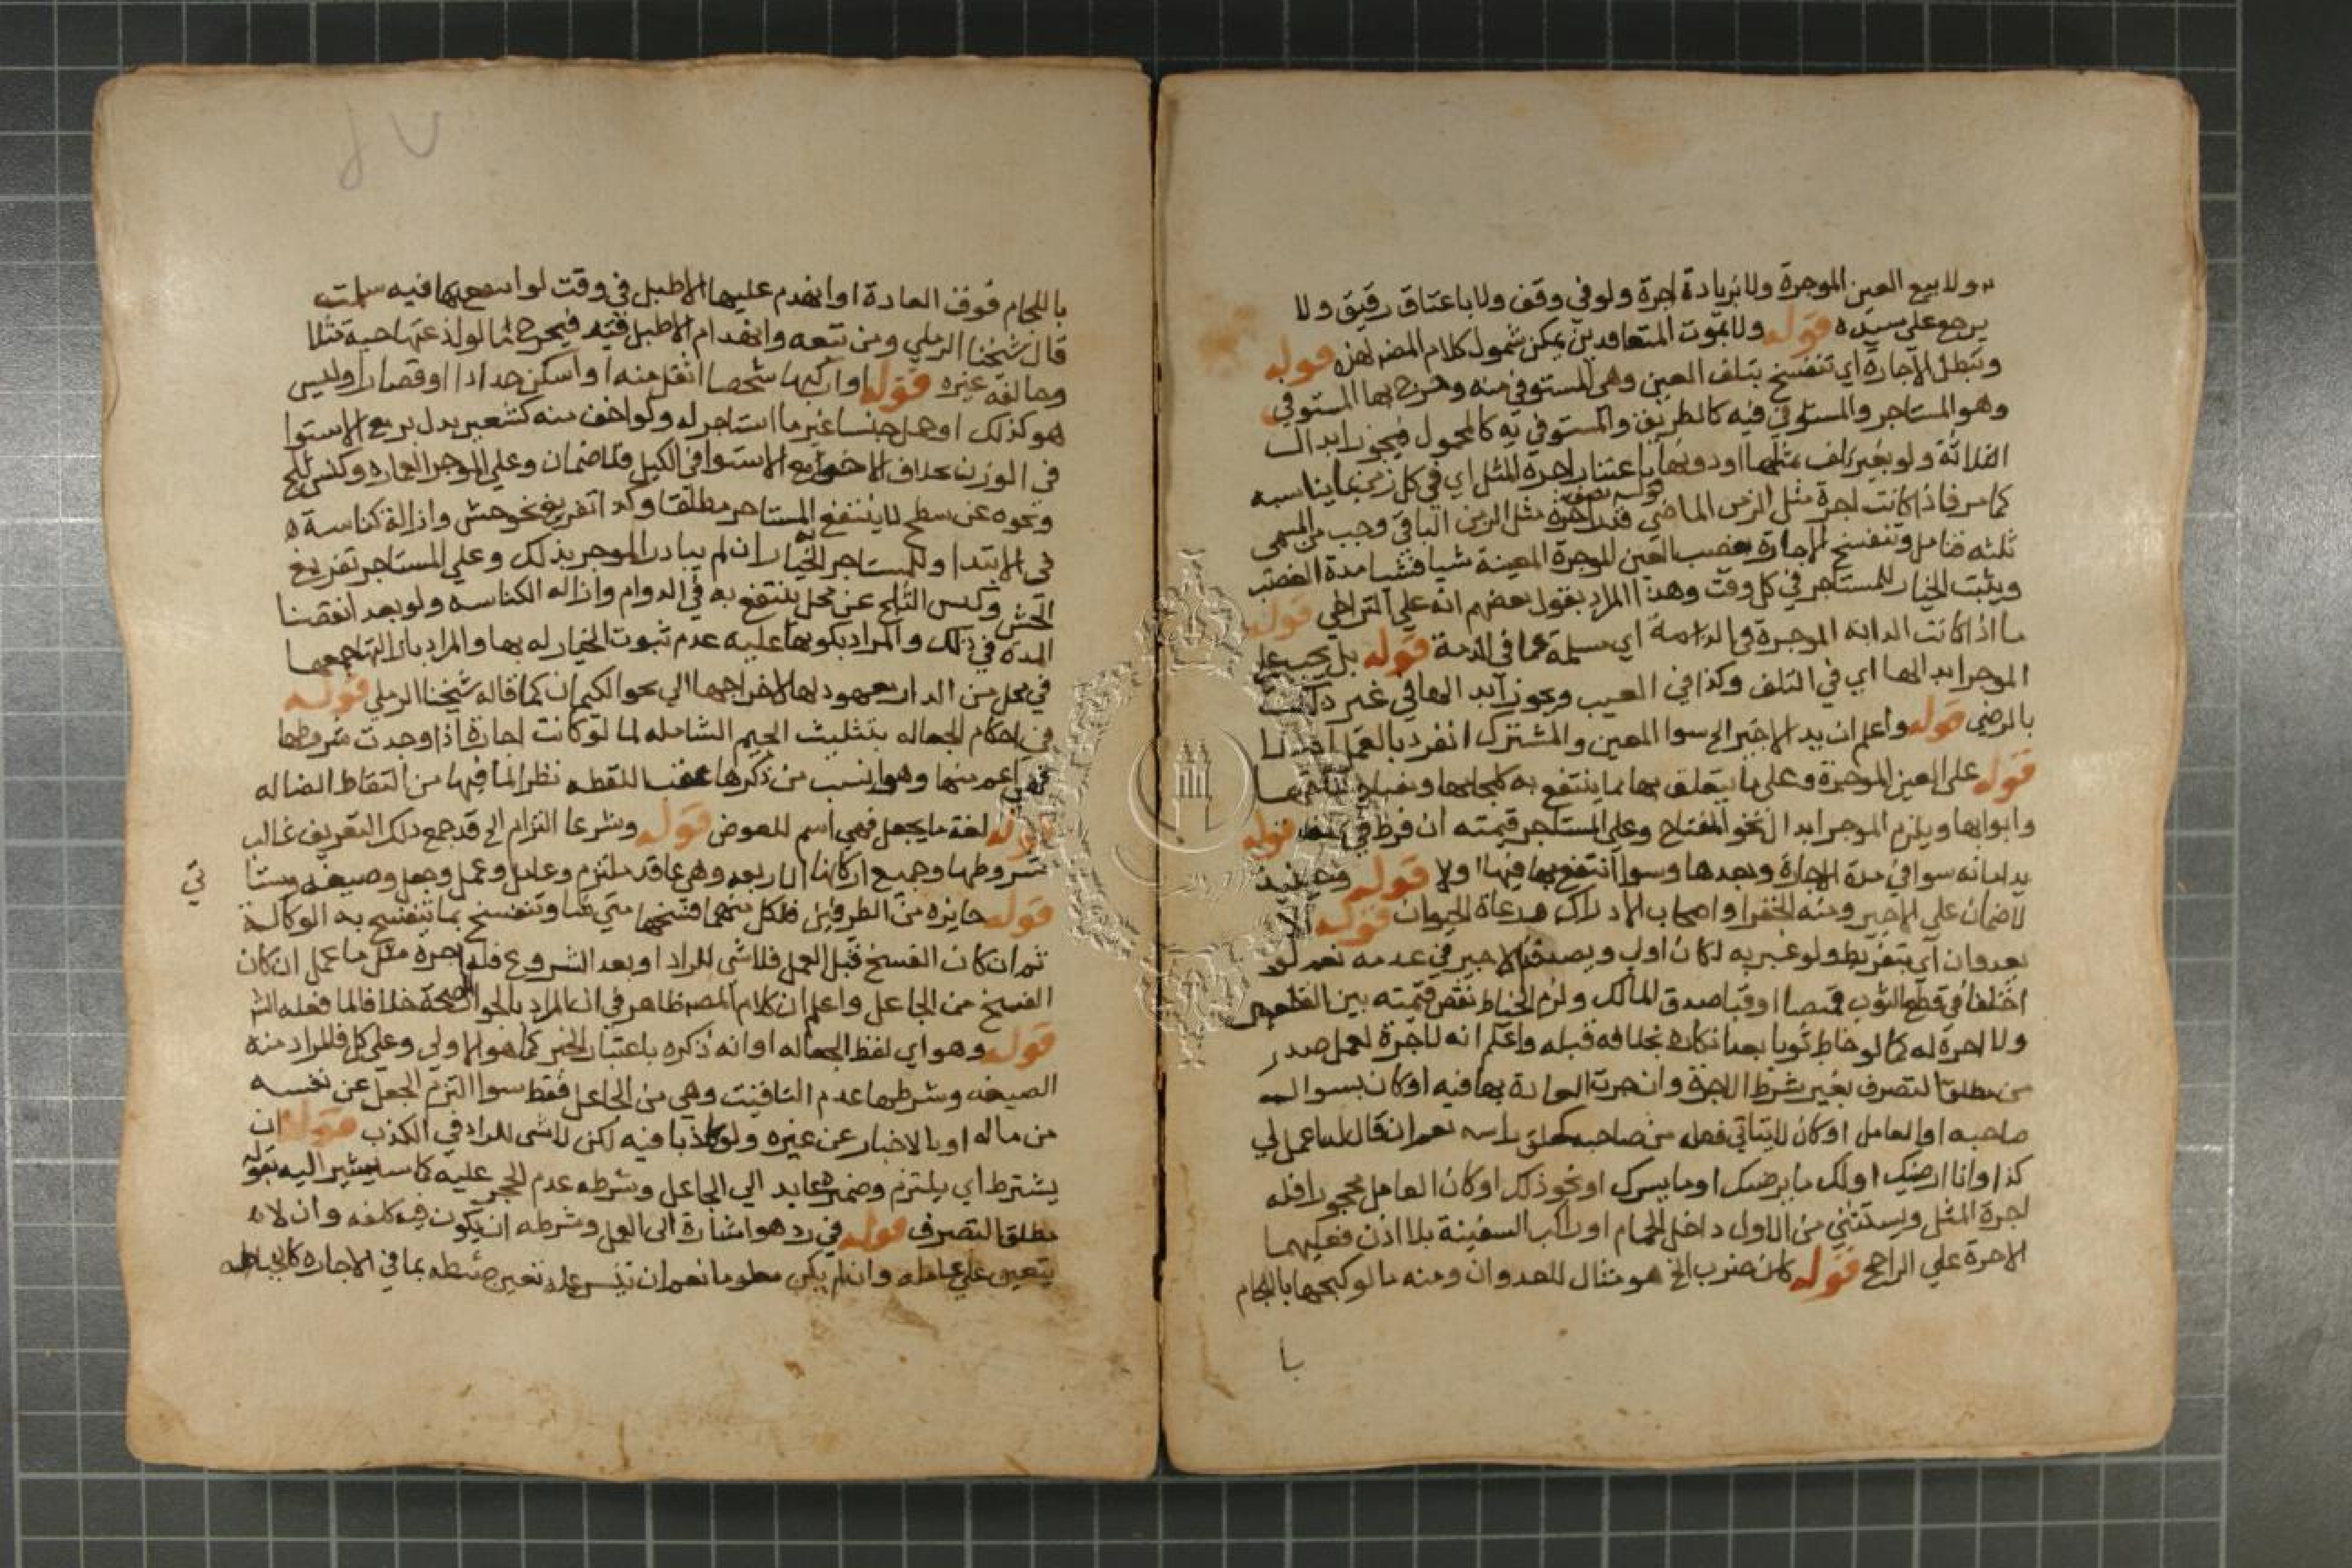 ولا ببيع العين الموجرة ولا بزيادة اجرة ولو في وقف ولا باعتاق رقيق ولا
يرجع على سيده قوله ولا بموت المتعاقدين يمكن شمول كلام المصـ لهذه قوله
وتبطل الاجارة اي تنفسخ بتلف العين وهي المستوفي منه وخرج بها المستوفي
وهو المستاجر والمستوفي فيه كالطريق والمستوفي به كالمحمول فيجوز ابدال
الثلاثة ولو بغير تلف بمثلها او دونها باعتبار اجرة المثل اي في كل زمن بما يناسبه
كما مر فاذا كانت اجرة مثل الزمن الماضي قدر اجرة مثل الزمن الباقي وجب من المسمى
ثلثه فتامل وتنفسخ الاجارة بغصب العين الموجرة المعينة شيا فشيا مدة الغصب
ويثبت الخيار للمستاجر في كل وقت وهذا المراد بقول بعضهم انه على التراخي قوله
ما اذا كانت الدابة الموجرة في الذمة اي مسلمة عما في الذمة قوله بل يجب على
الموجر ابدالها اي في التلف وكذا في العيب ويجوز ابدالها في غير ذلك
بالرضى قوله واعلم ان يد الاجير الخ سوا المعين والمشترك انفرد بالعمل ام لا
قوله على العين الموجرة وعلى ما يتعلق بها مما ينتفع به كلجامها
وابوابها ويلزم الموجر ابدال نحو المفتاح وعلى المستاجر قيمته ان فرط فيه قوله
يد امانه سوا في مدة الاجارة وبعدها وسوا انتفع بها فيها اولا قوله وحينئذ
لا ضمان على الاجير ومنه الخفرا واصحاب الادراك ورعاة الحيوان قوله الا
بعدوان اي بتفريط ولو عبر به لكان اولى ويصدق الاجير في عدمه نعم لو
اختلفا في قطع الثوب قميصا او قبا صدق المالك ولزم الخياط نقص قيمته بين القطعين
ولا اجرة له كما لو خاط ثوبا بعد انكاره بخلافه قبله واعلم انه لا اجرة لعمل صدر
من مطلق التصرف بغير شرط الاجرة وان جرت العادة بها فيه او كان بسوال
صاحبه او العامل او كان لا يتاتى فعله من صاحبه كحلق راسه نعم ان قال له اعمل لي
كذا وانا ارضيك او لك ما يرضيك او ما يسرك او نحو ذلك او كان العامل محجورا فله
اجرة المثل ويستثنى من الاول داخل الحمام او راكب السفينة بلا اذن فعليهما
الاجرة على الراجح قوله كان ضرب الخ هو مثال للعدوان ومنه ما لو كبحها باللجام
با
باللجام فوق العادة او انهدم عليها الاطبل في وقت لو انتفع بها فيه سلمت
قال شيخنا الرملي ومن تبعه وانهدام الاطبل قيد فيخرج ما لو لدغتها حية مثلا
وخالفه غيره قوله او اركبها شخصا اثقل منه او اسكن حدادا او قصارا وليس
هو كذلك او حمل جنسا غير ما استاجر له ولو اخف منه كشعير بدل بر مع الاستوا
في الوزن بخلاف الاخف مع الاستوا في الكيل فلا ضمان وعلى الموجر العمارة وكنس ثلج
ونحوه عن سطح لا ينتفع به المستاجر مطلقا وكذا تفريغ نحو حش وازالة كناسة
في الابتدا وللمستاجر الخيار ان لم يبادر الموجر بذلك وعلى المستاجر تفريغ
الحش وكنس الثلج عن محل ينتفع به في الدوام وازالة الكناسه ولو بعد انقضا
المدة في ذلك والمراد بكونها عليه عدم ثبوت الخيار له بها والمراد بازالتها جمعها
في محل من الدار معهود لها لا اخراجها الى نحو الكيمان كما قاله شيخنا الرملي قوله
في احكام الجعاله بتثليث الجيم الشامله لما لو كانت اجارة اذا وجدت شروطها
فهي اعم منها وهو انسب من ذكرها عقب اللقطه نظرا لما فيها من التقاط الضاله
قوله لغة ما يجعل فهي اسم للعوض قوله وشرعا التزام الخ قد جمع ذلك التعريف غالب
شروطها وجميع اركانها الاربعه وهي عاقد ملتزم وعامل وعمل وجعل وصيغه وستا
تي
قوله جايزة من الطرفين فلكل منهما فسخها متى شا وتنفسخ بما تنفسخ به الوكالة
ثم ان كان الفسخ قبل العمل فلا شي للراد او بعد الشروع فله اجرة مثل ما عمل ان كان
الفسخ من الجاعل واعلم ان كلام المصـ ظاهر في ان المراد بالجواز الصحة خلافا لما فعله الشـ
قوله وهو اي لفظ الجعاله او انه ذكره باعتبار الخبر كما هو الاولى وعلى كل فالمراد منه
الصيغه وشرطها عدم التاقيت وهي من الجاعل فقط سوا التزم الجعل عن نفسه
من ماله او بالاخبار عن غيره ولو كاذبا فيه لكن لا شي للراد في الكذب قوله ان
يشترط اي يلتزم وضميره عايد الى الجاعل وشرطه عدم الحجر عليه كما سيشير اليه بقوله
مطلق التصرف قوله في رد هو اشارة الى العمل وشرطه ان يكون فيه كلفه وان لا
يتعين على عامله وان لم يكن معلوما نعم ان تيسر علمه تعين ضبطه بما في الاجاره كالخياطه